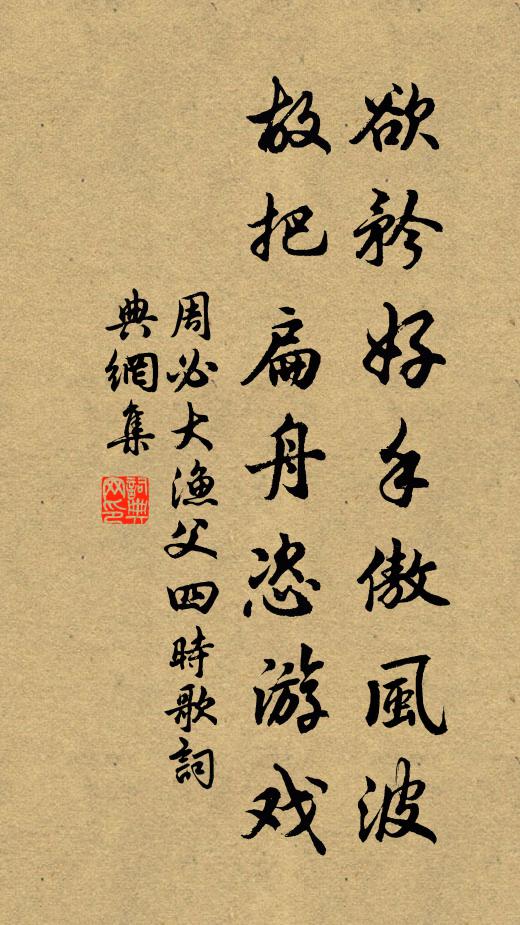 欲矜好手傲風波
故把扁舟恣游戏
周必大漁父四時歌詞
典網集
詞典网印